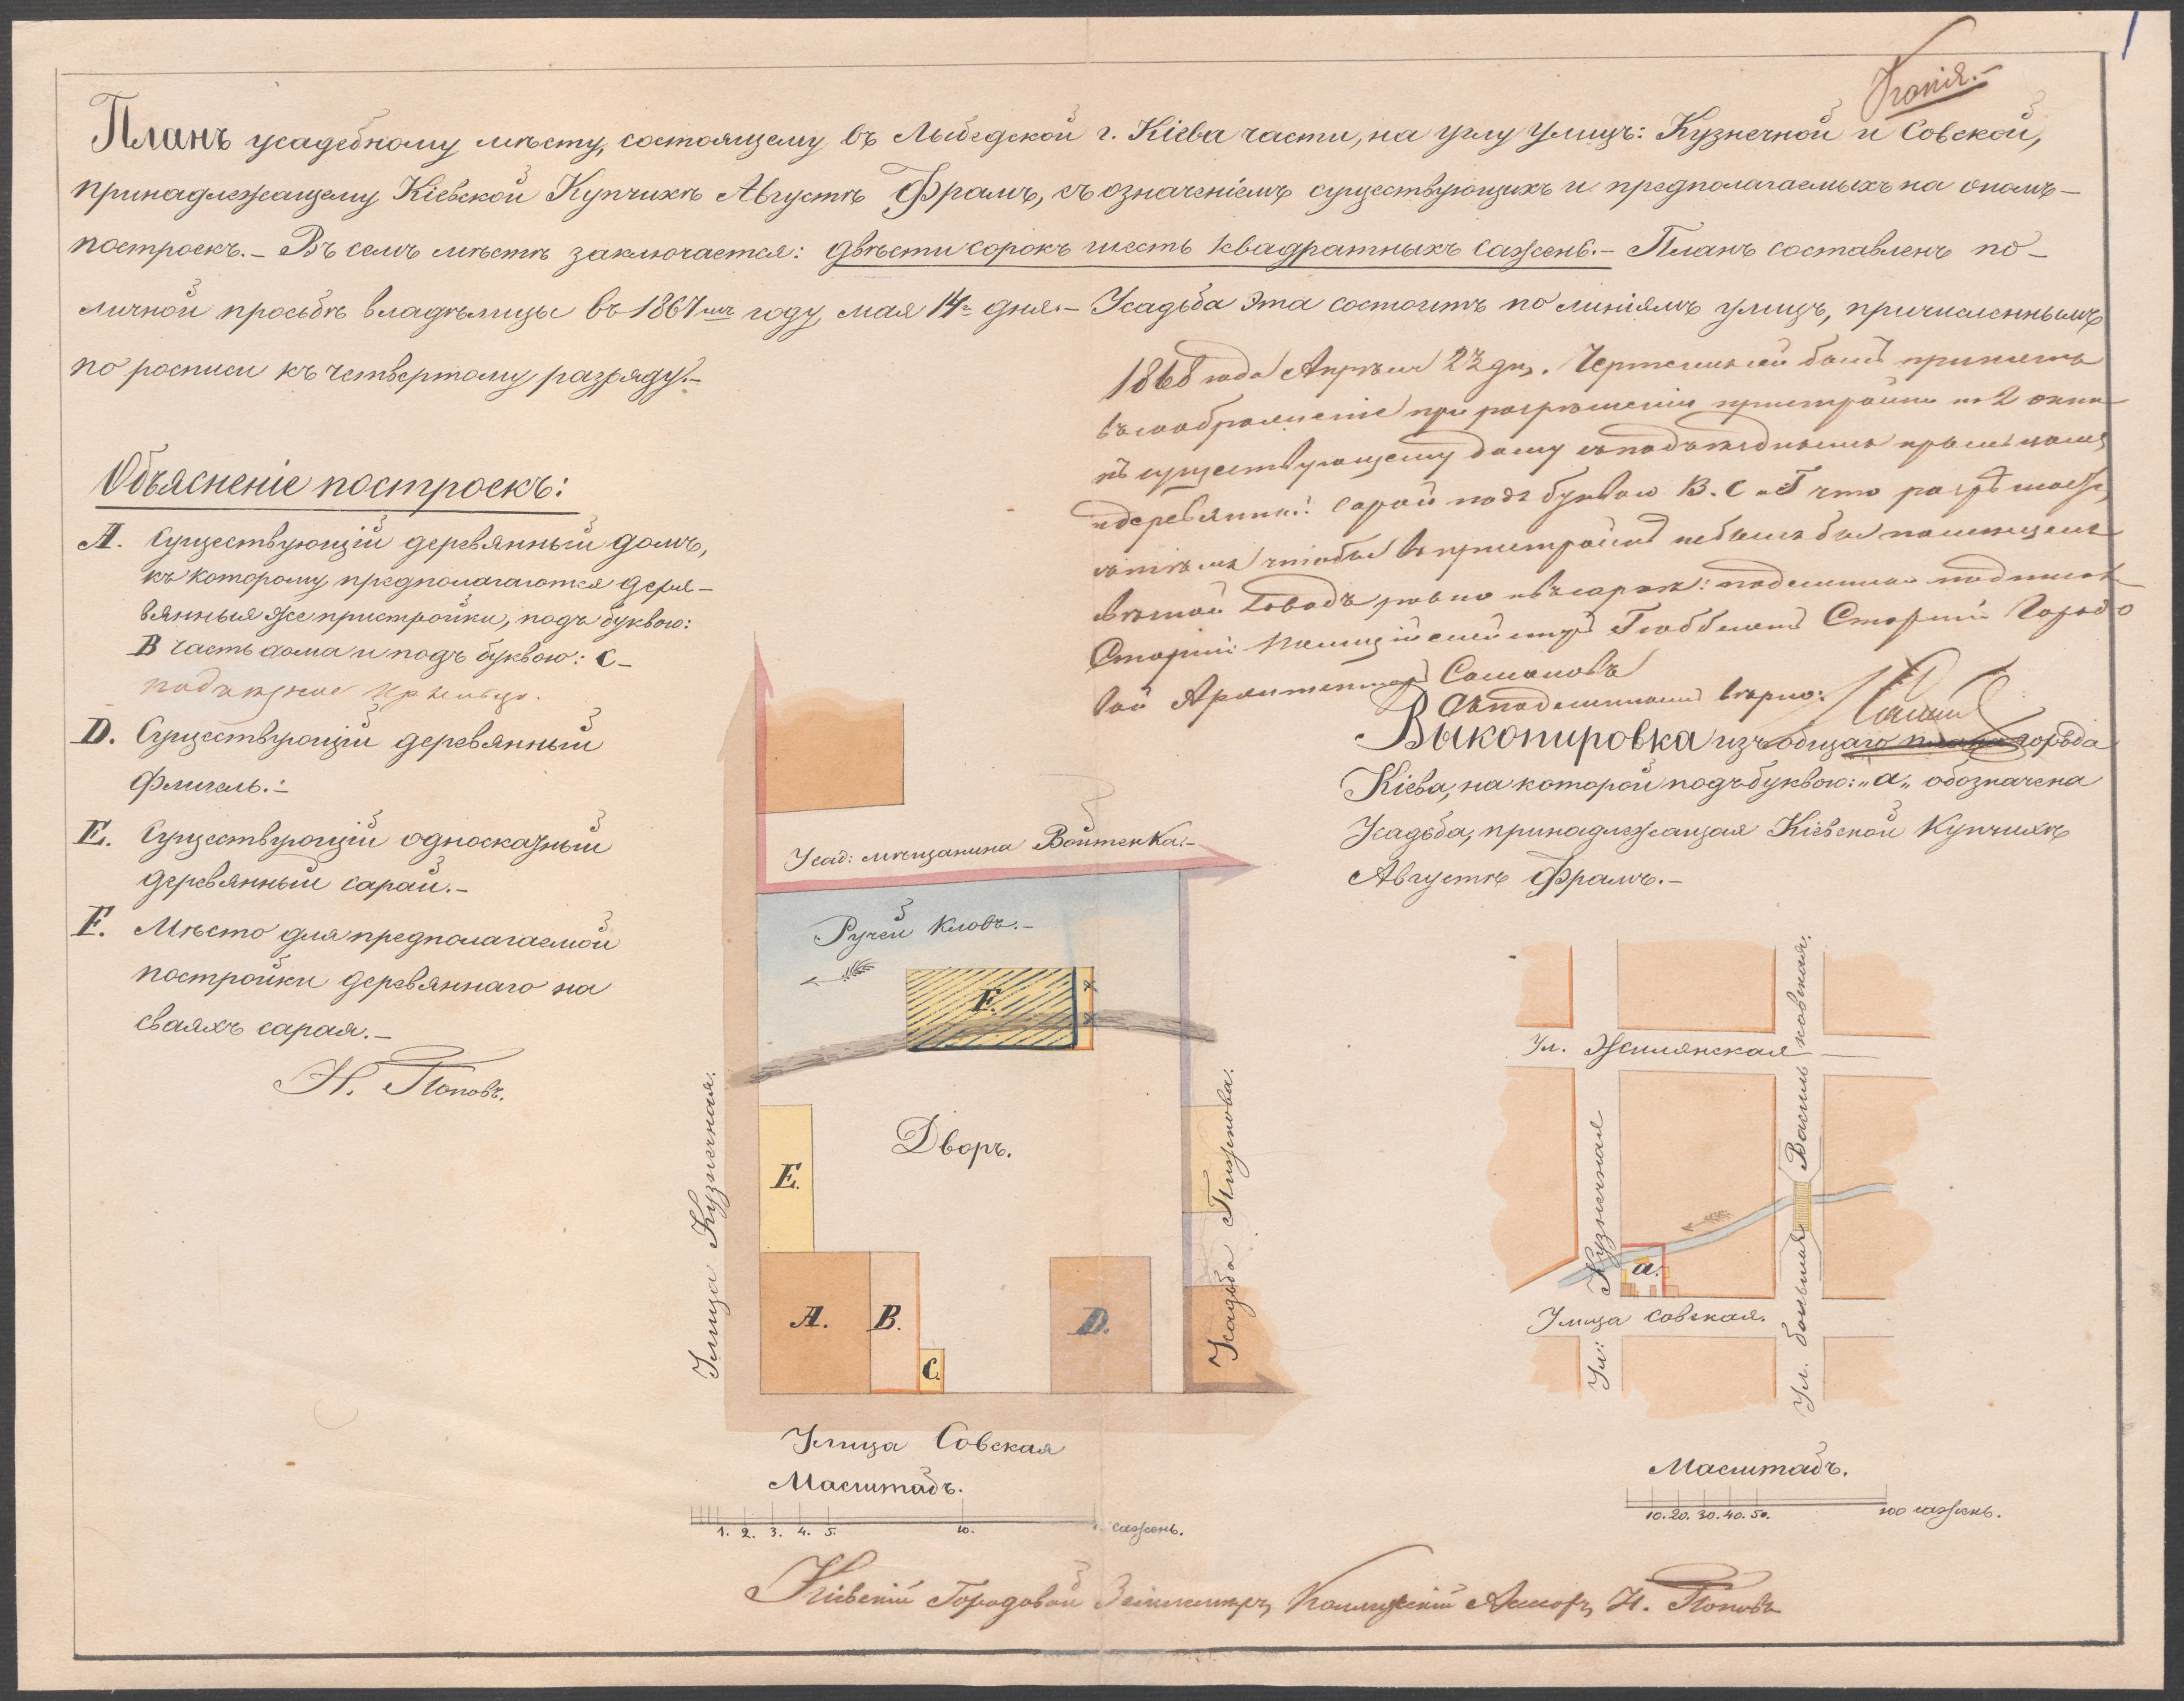 Копія.-
Планъ усадебному мѣсту, состоящему въ Лыбедской г. Кіева части, на углу улицъ: Кузнечной и Совской,
принадлежащему Кіевской Купчихѣ Августѣ Фрамъ, съ означеніемъ существующихъ и предполагаемыхъ на ономъ-
построекъ.- Въ семъ мѣстѣ заключается: двѣсти сорокъ шесть квадратныхъ сажень.- Планъ составленъ по-
личной просьбѣ владѣлицы въ 1867мъ году, мая 14го дня.- Усадьба эта состоитъ по линіямъ улицъ, причисленнымъ
по росписи къ четвертому разряду.-
1868 года Апрѣля 23 дн. Чертежъ сей былъ принятъ
въ соображеніе при разрѣшеніи пристройки въ 2 окна
къ существующему дому съ подъѣзднымъ крыльцомъ
и деревянный сарай подъ буквою В. С и F что разрѣшается
съ тѣмъ чтобы въ пристройкѣ небылъ бы помѣщенъ
Старшій Полиціймейстеръ Гюббенетъ Старшій Городо
вой Архитекторъ
Съ подлиннымъ вѣрно:
Объясненіе построекъ:
A. Существующій деревянный домъ,
къ которому предполагаются дере-
вянныя же пристройки, подъ буквою:
B часть дома и подъ буквою: C-
подъѣздное крыльцо.
D. Существующій деревянный
флигель.-
E. Существующій односкатный
деревянный сарай.-
F. Мѣсто для предполагаемой
постройки деревяннаго на
сваяхъ сарая.-
Н. Поповъ.
Выкопировка изъ общаго плана города
Кіева, на которой подъ буквою: „а„ обозначена
Усадьба, принадлежащая Кіевской Купчихѣ
Августѣ Фрамъ.-
Усад: мѣщанина Войтенка.-
Ручей Кловъ.-
F.
Дворъ.
E.
A.
B.
C.
D.
Улица Кузнечная.
Усадьба Пижкова.
Улица Совская
Масштабъ.
1. 2. 3. 4. 5. 10. сажень.
Ул. Жилянская
Ул: Кузнечная
Ул. большая Васильковская.
а.
Улица Совская.
Масштабъ.
10. 20. 30. 40. 50. 100 сажень.
Кіевскій Городовой Землемѣръ, Коллежскій Ассесоръ Н. Поповъ